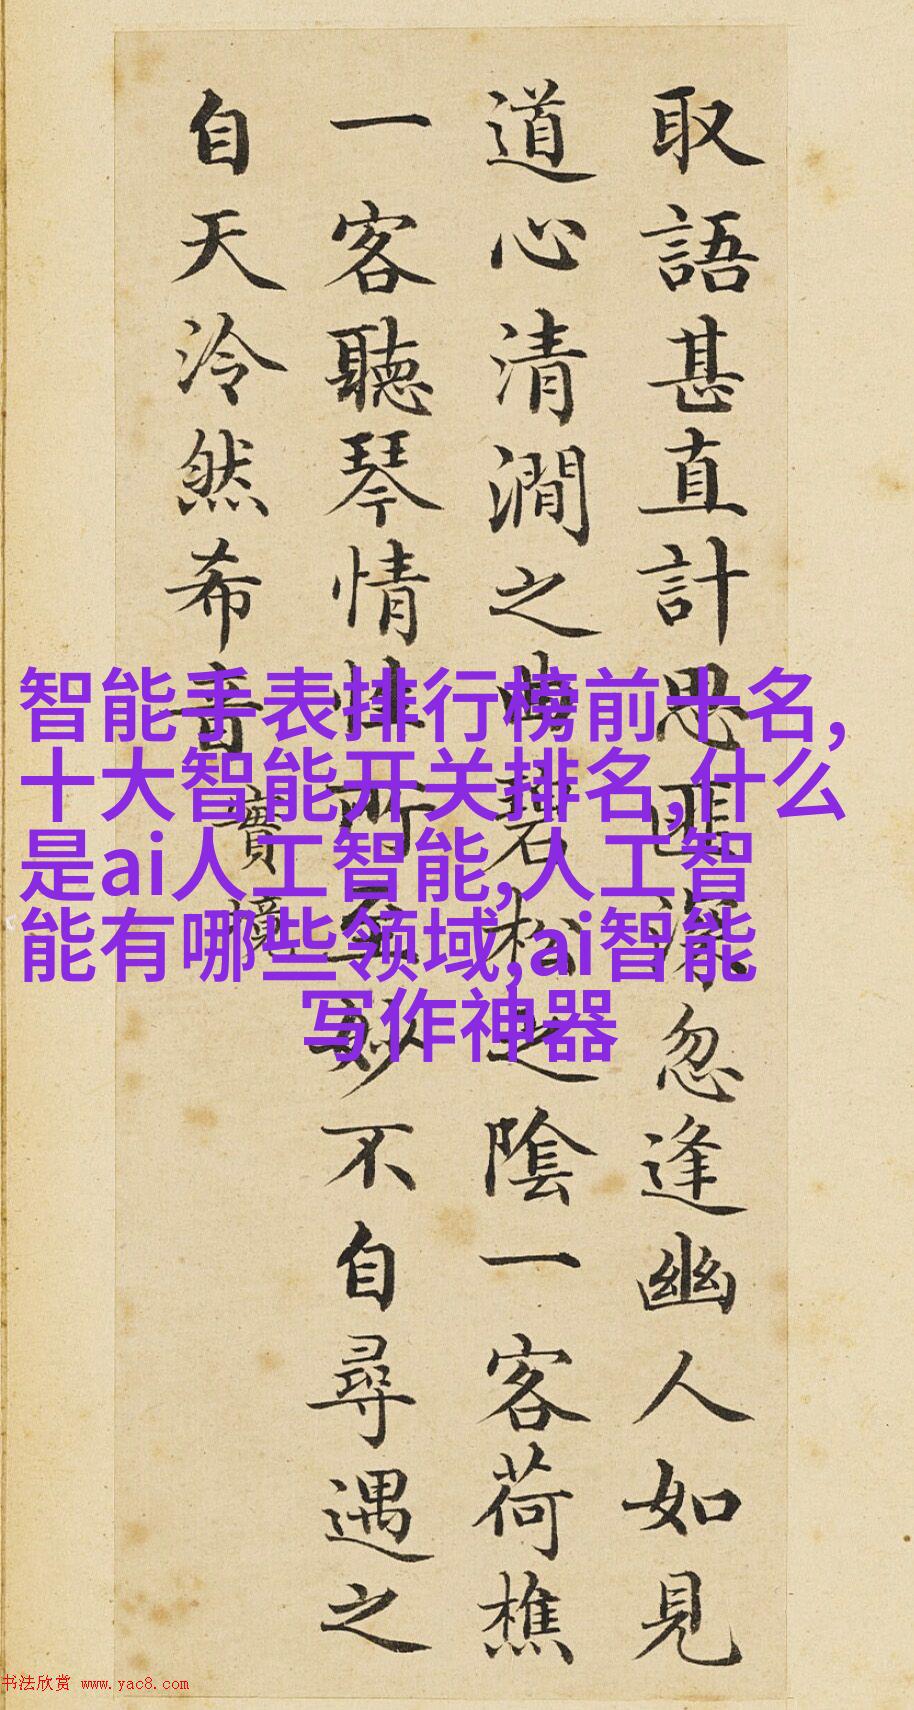 取語甚直計思匪深忽逢幽人如見
道心清澗之曲碧松之陰一客荷樵
一客聽琴情性所至妙不自尋遇之
自天泠然希音
實境
智能手表排行榜前十名,
十大智能开关排名,什么
是ai人工智能,人工智
能有哪些领域,ai智能
写作神器
书法欣赏 www.yac8.com